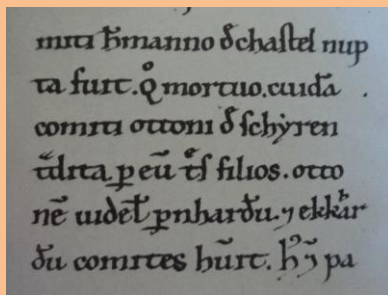 miti h̄manno đ chaſtel nup
ta fuit. Qͦ mortuo. cuidā
comiti ottoni đ ſchẏren
t̄dita. ꝑ eū tͤſ filios. otto
nē uidel̄ ꝑnhardū. ⁊ ekkar
dū comites hūit. hꝰ ⁊ pa